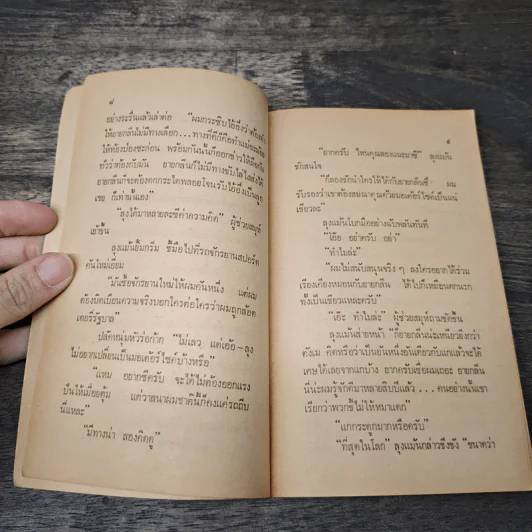 ๘
อย่างระรื่นแล้วเล่าต่อ "ผมกระซิบไอ้อึ่งว่าต้อง
ให้ยายกลิ่นไม่มีทางเลือก...ทางที่ดีก็คือทำ
ให้ท้องป่องซะก่อน พร้อมกันนั้นก็ออกข่าวให้
ทั่วว่าท้องกับมัน ยายกลิ่นก็ไม่มีทางขับไล่ไสส่งได้
ยายกลิ่นก็จะต้องตกกระไดพลอยโจนรับไอ้อึ่งเป็นลูก
เขย ก็เท่านั้นเอง"
"ลุงได้มาหลายตะขีค่าความคิด" ผู้ช่วยสมุห์
เย้าขัน
ลุงแม้นยิ้มกริ่ม ชี้มือไปที่รถจักรยานสปอร์ต
คันใหม่เอี่ยม
"มันซื้อจักรยานใหม่ให้ผมคันหนึ่ง แต่ผม
ต้องปิดเป็นความจริงบอกใครต่อใครว่าผมถูกล็อต
เตอรี่รัฐบาล"
ปลัดหนุ่มหัวร่อก๊าก "ไม่เลว แต่เอ้อ–ลุง
ไม่อยากเปลี่ยนเป็นมอเตอร์ไซค์บ้างหรือ"
"แหม อยากซีครับ จะได้ไม่ต้องออกแรง
ปั่นให้เมื่อยตุ้ม แต่วาสนาผมชาตินี้ก็คงแค่รถถีบ
นี่แหละ"
"มีทางน่า ลองคิดดู"
๙
"ยากครับ ไหนคุณลองแนะมาซิ" ลุงแม้น
ซักสนใจ
"ก็ลองชักนำใครให้ได้กับยายกลิ่นซี่ ผม
รับรองว่าเขาต้องสมนาคุณด้วยมอเตอร์ไซค์เป็นแน่
เชียวละ"
ลุงแม้นโบกมืออย่างฉับพลันทันที
"โอ๊ย อย่าครับ อย่า"
"ทำไมล่ะ"
"ผมไม่สนับสนุนจริง ๆ ลงใครอยากได้ร่วม
เรียงเคียงหมอนกับยายกลิ่น ได้ไปก็เหมือนตกนรก
ทั้งเป็นเชียวแหละครับ"
"เอ๊ะ ทำไมล่ะ" ผู้ช่วยสมุห์ถามขัดขึ้น
ลุงแม้นส่ายหน้า "ก็ยายกลิ่นน่ะเหนียวยิ่งกว่า
ตังเม คิดหรือว่าเป็นอันหนึ่งอันเดียวกับแกแล้วจะได้
เศษได้เลยจากแกบ้าง ยากครับเชื่อผมเถอะ ยายกลิ่น
นี่น่ะผมรู้จักดีมาหลายสิบปีแล้ว... คนอย่างนี้เขา
เรียกว่าพวกขี้ไม่ให้หมาแดก"
"แกกระดูกมากหรือครับ"
"ที่สุดในโลก" ลุงแม้นกล่าวขึงขัง "ขนาดว่า